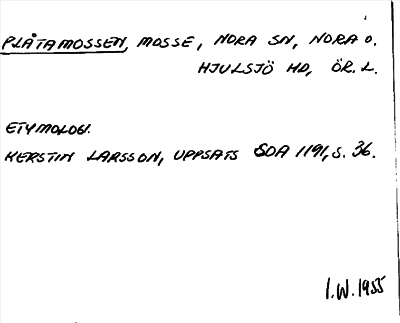 PLÅTAMOSSEN, MOSSE, NORA SN, NORA O.
HJULSJÖ HD, ÖR. L.
ETYMOLOGI.
KERSTIN LARSSON, UPPSATS SOA 1191, S. 36.
I.W. 1955